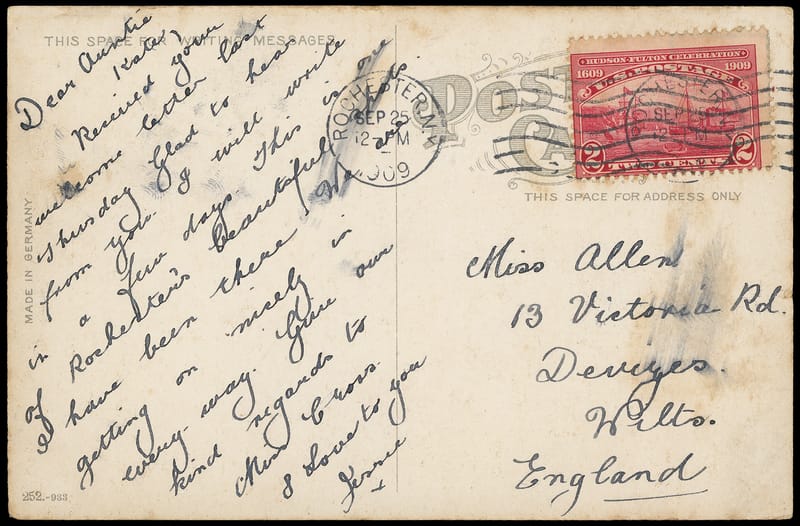 THIS SPACE FOR WRITING MESSAGES
Dear Auntie
Kate,
Recived your
welcome letter last
Thursday Glad to hear
from you. I will write
in a few days. This is one
of Rochester's beautiful parks.
I have been there. We are
getting on nicely in
every way. Give our
kind regards to
Miss Cross
& Love to you
Jessie
x
MADE IN GERMANY
252.-933
ROCHESTER, N.Y.
SEP 25
12-PM
1909
POST
CA
HUDSON-FULTON CELEBRATION
1609 1909
U.S. POSTAGE
2 TWO CENTS 2
ROCHESTER, N.Y.
SEP 25
12
THIS SPACE FOR ADDRESS ONLY
Miss Allen
13 Victoria Rd.
Devizes.
Wilts.
England